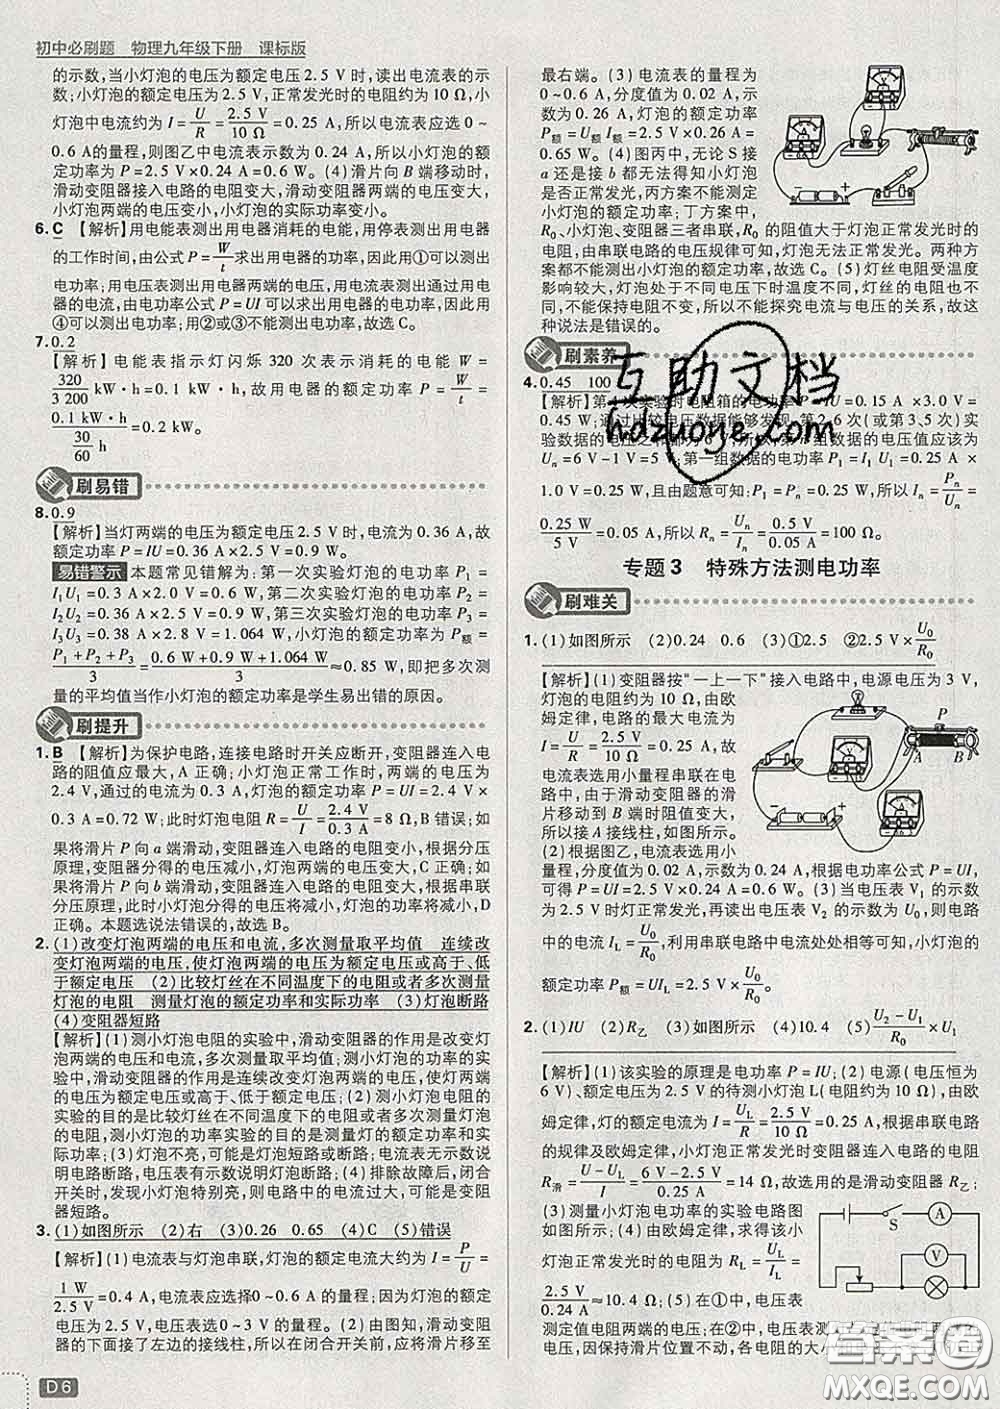 初中必刷题 物理九年级下册 课标版
的示数,当小灯泡的电压为额定电压2.5 V时,读出电流表的示
数;小灯泡的额定电压为2.5 V,正常发光时的电阻约为10 Ω,小
灯泡中电流约为I=U/R=2.5 V/10 Ω=0.25 A,所以电流表应选0~
0.6 A的量程,则图乙中电流表示数为0.24 A,所以小灯泡的额
定功率为P=2.5 V×0.24 A=0.6 W。(4)滑片向B端移动时,
滑动变阻器接入电路的电阻变大,滑动变阻器两端的电压变大,
小灯泡两端的电压变小,小灯泡的实际功率变小。
6.C 【解析】用电能表测出用电器消耗的电能,用停表测出用电器
的工作时间,由公式P=W/t求出用电器的功率,因此用①可以测出
电功率;用电压表测出用电器两端的电压,用电流表测出通过用电
器的电流,由电功率公式P=UI可以求出用电器的电功率,因此用
④可以测出电功率;用②③不能测出电功率,故选C。
7.0.2
【解析】电能表指示灯闪烁320次表示消耗的电能W=
320/3 200 kW·h=0.1 kW·h,故用电器的额定功率P=W/t=
0.1 kW·h/(30/60 h)=0.2 kW。
刷易错
8.0.9
【解析】当灯两端的电压为额定电压2.5 V时,电流为0.36 A,故
额定功率P=IU=0.36 A×2.5 V=0.9 W。
易错警示 本题常见错解为:第一次实验灯泡的电功率P₁=
I₁U₁=0.3 A×2.0 V=0.6 W,第二次实验灯泡的电功率P₂=
I₂U₂=0.36 A×2.5 V=0.9 W,第三次实验灯泡的电功率P₃=
I₃U₃=0.38 A×2.8 V=1.064 W,小灯泡的额定功率为P额=
(P₁+P₂+P₃)/3=(0.6 W+0.9 W+1.064 W)/3≈0.85 W,即把多次测
量的平均值当作小灯泡的额定功率是学生易出错的原因。
刷提升
1.B 【解析】为保护电路,连接电路时开关应断开,变阻器连入电
路的阻值应最大,A正确;小灯泡正常工作时,两端的电压为
2.4 V,通过的电流为0.3 A,灯泡的额定功率为P=UI=2.4 V×
0.3 A=0.72 W;此时灯泡电阻R=U/I=2.4 V/0.3 A=8 Ω,B错误;如
果将滑片P向a端滑动,变阻器连入电路的电阻减小,根据分压
原理,变阻器分得的电压减小,灯泡两端的电压变大,C正确;如
果将滑片P向b端滑动,变阻器连入电路的电阻变大,根据串联
分压特点,此时小灯泡分得的电压将减小,灯泡功率将减小,D
正确。本题选说法错误的,故选B。
2.(1)改变灯泡两端的电压和电流,多次测量取平均值 连续改
变灯泡两端的电压,使灯泡两端的电压为额定电压或高于、低
于额定电压 (2)比较灯丝在不同温度下的电阻或者多次测量
灯泡的电阻 测量灯泡的额定功率和实际功率 (3)灯泡断路
(4)变阻器短路
【解析】(1)测小灯泡电阻的实验,滑动变阻器的作用是改变灯
泡两端的电压和电流,多次测量取平均值;测小灯泡的功率的实
验中,滑动变阻器的作用是连续改变灯泡两端的电压,使灯泡两
端的电压为额定电压或高于、低于额定电压。(2)测小灯泡电阻
实验的目的是比较灯丝在不同温度下的电阻或者多次测量灯泡
的电阻,测小灯泡的功率实验的目的是测量灯的额定功率和实际
功率;(3)灯泡不亮,可能是灯泡短路或断路;电流表无示数说
明电路断路,电压表有示数说明灯泡断路;(4)排除故障后,闭合
开关时,发现小灯泡特别亮,则电路中的电流过大,可能是变阻
器短路。
3.(1)如图所示 (2)右 (3)0.26 0.65 (4)C (5)错误
【解析】(1)电流表与灯泡串联,灯泡的额定电流大约为I=P/U=
1 W/2.5 V=0.4 A,电流表应选择0~0.6 A的量程;因为灯泡额定
电压为2.5 V,电压表应选0~3 V的量程。(2)由图知,滑动变阻
器的下面接了左边的接线柱,所以在闭合开关前,应将滑片移至
最右端。(3)电流表的量程为
0~0.6 A,分度值为0.02 A,示
数为0.26 A,灯泡的额定功率
P额=U额 I额=2.5 V×0.26 A=
0.65 W。(4)图丙中,无论S接
a还是接b都无法得知小灯泡
是否正常发光,丙方案不能测定
小灯泡的额定功率;丁方案中,
R₀、小灯泡、变阻器三者串联,R₀的阻值大于灯泡正常发光时的
电阻,由串联电路的电压规律可知,灯泡无法正常发光。两种方
案都不能测出小灯泡的额定功率,故选C。(5)灯丝受温度
影响较大,灯泡处于不同电压下时,温度变化大,灯丝电阻不同,
不能保持电阻不变,所以不能探究电流与电压的关系,故这
种说法是错误的。
刷素养
4.0.45 100
【解析】第一次实验时电阻箱的电功率P=IU=0.15 A×3.0 V=
0.45 W;通过比较电压数据能够发现,第2、6次(或第3、5次)实
验数据的电压之和都为6 V,所以第n组数据的电压值应该为
Uₙ=6 V-1 V=5 V;第一组数据的电功率P₁=I₁U₁=0.25 A×
1.0 V=0.25 W,且由题意可知:P₁=Pₙ=0.25 W,所以Iₙ=Pₙ/Uₙ=
0.25 W/5 V=0.05 A,所以Rₙ=Uₙ/Iₙ=0.5 V/0.05 A=100 Ω。
专题3 特殊方法测电功率
刷难关
1.(1)如图所示 (2)0.24 0.6 (3)①2.5 ②2.5 V×U₀/R₀
【解析】(1)变阻器按“一上一下”接入电路中,电源电压为3 V,
灯泡的电阻约为10 Ω,由欧
姆定律,电路的最大电流为
I=U/R=3 V/10 Ω=0.3 A,故
电流表选用小量程串联在电
路中,由于滑动变阻器的滑
片移动到B时阻值变大,
所以接A接线柱,如图所示。
(2)根据图乙,电流表选用小
量程,分度值为0.02 A,电流示数为0.24 A,根据电功率公式P=UI,
可得P=2.5 V×0.24 A=0.6 W;(3)当电压表V₁的示数
为2.5 V时灯正常发光,再读出电压表V₂的示数为U₀,则定值电
阻的电流I_L=U₀/R₀,利用串联电路中电流处处相等可知,灯泡的
额定功率P额=UI_L=2.5 V×U₀/R₀。
2.(1)IU (2)R乙 (3)如图所示 (4)10.4 (5)(U₂-U₁)/R₀×U₁
【解析】(1)该实验的原理是电功率P=IU;(2)电源(电压恒为
6 V)、额定电压为2.5 V的待测小灯泡L(电阻约为10 Ω),由欧
姆定律,灯的额定电流大约为I=U_L/R=2.5 V/10 Ω=0.25 A,根据串联电路
的规律及欧姆定律,小灯泡正常发光时变阻器连入电路的电阻
R滑=(U-U_L)/I=(6 V-2.5 V)/0.25 A=14 Ω,故选用的是滑动变阻器R乙;
(3)测量小灯泡电功率的实验电路图
如图所示;(4)由欧姆定律,求得该小
灯泡正常发光时的电阻为R_L=U_L/I_L=
2.5 V/0.24 A≈10.4 Ω;(5)在①中,电压表
测定值电阻两端的电压,在②中,
因为保持滑片位置不变,各电阻的大小
P
A
B
S
A
V
D6
互助文档
hdzuoye.com
答案圈
MXQE.COM